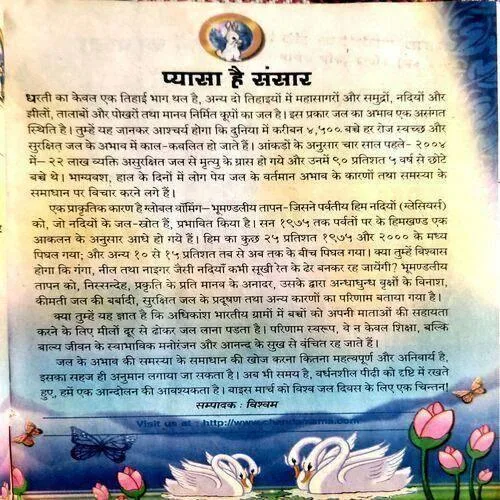 प्यासा है संसार
धरती का केवल एक तिहाई भाग थल है, अन्य दो तिहाइयों में महासागरों और समुद्रों, नदियों और
झीलों, तालाबों और पोखरों तथा मानव निर्मित कूपों का जल है। इस प्रकार जल का अभाव एक असंगत
स्थिति है। तुम्हें यह जानकर आश्चर्य होगा कि दुनिया में करीबन ४,५०० बच्चे हर रोज स्वच्छ और
सुरक्षित जल के अभाव में काल-कवलित हो जाते हैं। आंकडों के अनुसार चार साल पहले- २००४
में- २२ लाख व्यक्ति असुरक्षित जल से मृत्यु के ग्रास हो गये और उनमें ९० प्रतिशत ५ वर्ष से छोटे
बच्चे थे। भाग्यवश, हाल के दिनों में लोग पेय जल के वर्तमान अभाव के कारणों तथा समस्या के
समाधान पर विचार करने लगे हैं।
एक प्राकृतिक कारण है ग्लोबल वॉर्मिंग-भूमण्डलीय तापन-जिसने पर्वतीय हिम नदियों (ग्लेसियर्स)
को, जो नदियों के जल-स्रोत हैं, प्रभावित किया है। सन १९७५ तक पर्वतों पर के हिमखण्ड एक
आकलन के अनुसार आधे हो गये हैं। हिम का कुछ २५ प्रतिशत १९७५ और २००० के मध्य
पिघल गया; और अन्य १० से १५ प्रतिशत तब से अब तक के बीच पिघल गया। क्या तुम्हें विश्वास
होगा कि गंगा, नील तथा नाइगर जैसी नदियाँ कभी सूखी रेत के ढेर बनकर रह जायेंगी? भूमण्डलीय
तापन को, निस्सन्देह, प्रकृति के प्रति मानव के अनादर, उसके द्वारा अन्धाधुन्ध वृक्षों के विनाश,
कीमती जल की बर्बादी, सुरक्षित जल के प्रदूषण तथा अन्य कारणों का परिणाम बताया गया है।
क्या तुम्हें यह ज्ञात है कि अधिकांश भारतीय ग्रामों में बच्चों को अपनी माताओं की सहायता
करने के लिए मीलों दूर से ढोकर जल लाना पडता है। परिणाम स्वरूप, ये न केवल शिक्षा, बल्कि
बाल्य जीवन के स्वाभाविक मनोरंजन और आनन्द के सुख से वंचित रह जाते हैं।
जल के अभाव की समस्या के समाधान की खोज करना कितना महत्वपूर्ण और अनिवार्य है,
इसका सहज ही अनुमान लगाया जा सकता है। अब भी समय है, वर्धनशील पीढी को दृष्टि में रखते
हुए, हमें एक आन्दोलन की आवश्यकता है। बाइस मार्च को विश्व जल दिवस के लिए एक चिन्तन!
सम्पादक : विश्वम
Visit us at : http://www.chandamama.com